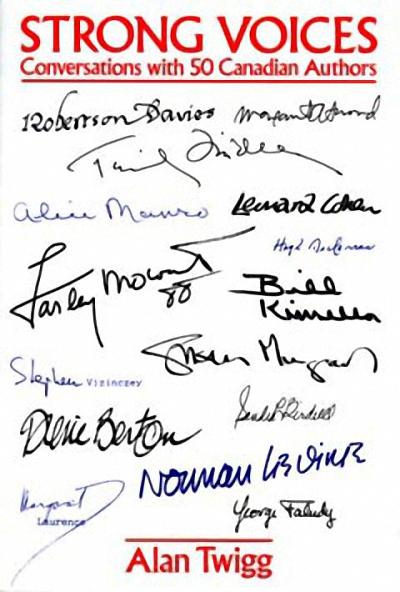 STRONG VOICES
Conversations with 50 Canadian Authors
Robertson Davies
Margaret Atwood
Alice Munro
Leonard Cohen
Farley Mowat
88
Bill
Kinsella
Susan Musgrave
Stephen Vizinczey
Pierre Berton
Norman Levine
Margaret
Laurence
George Faludy
Alan Twigg